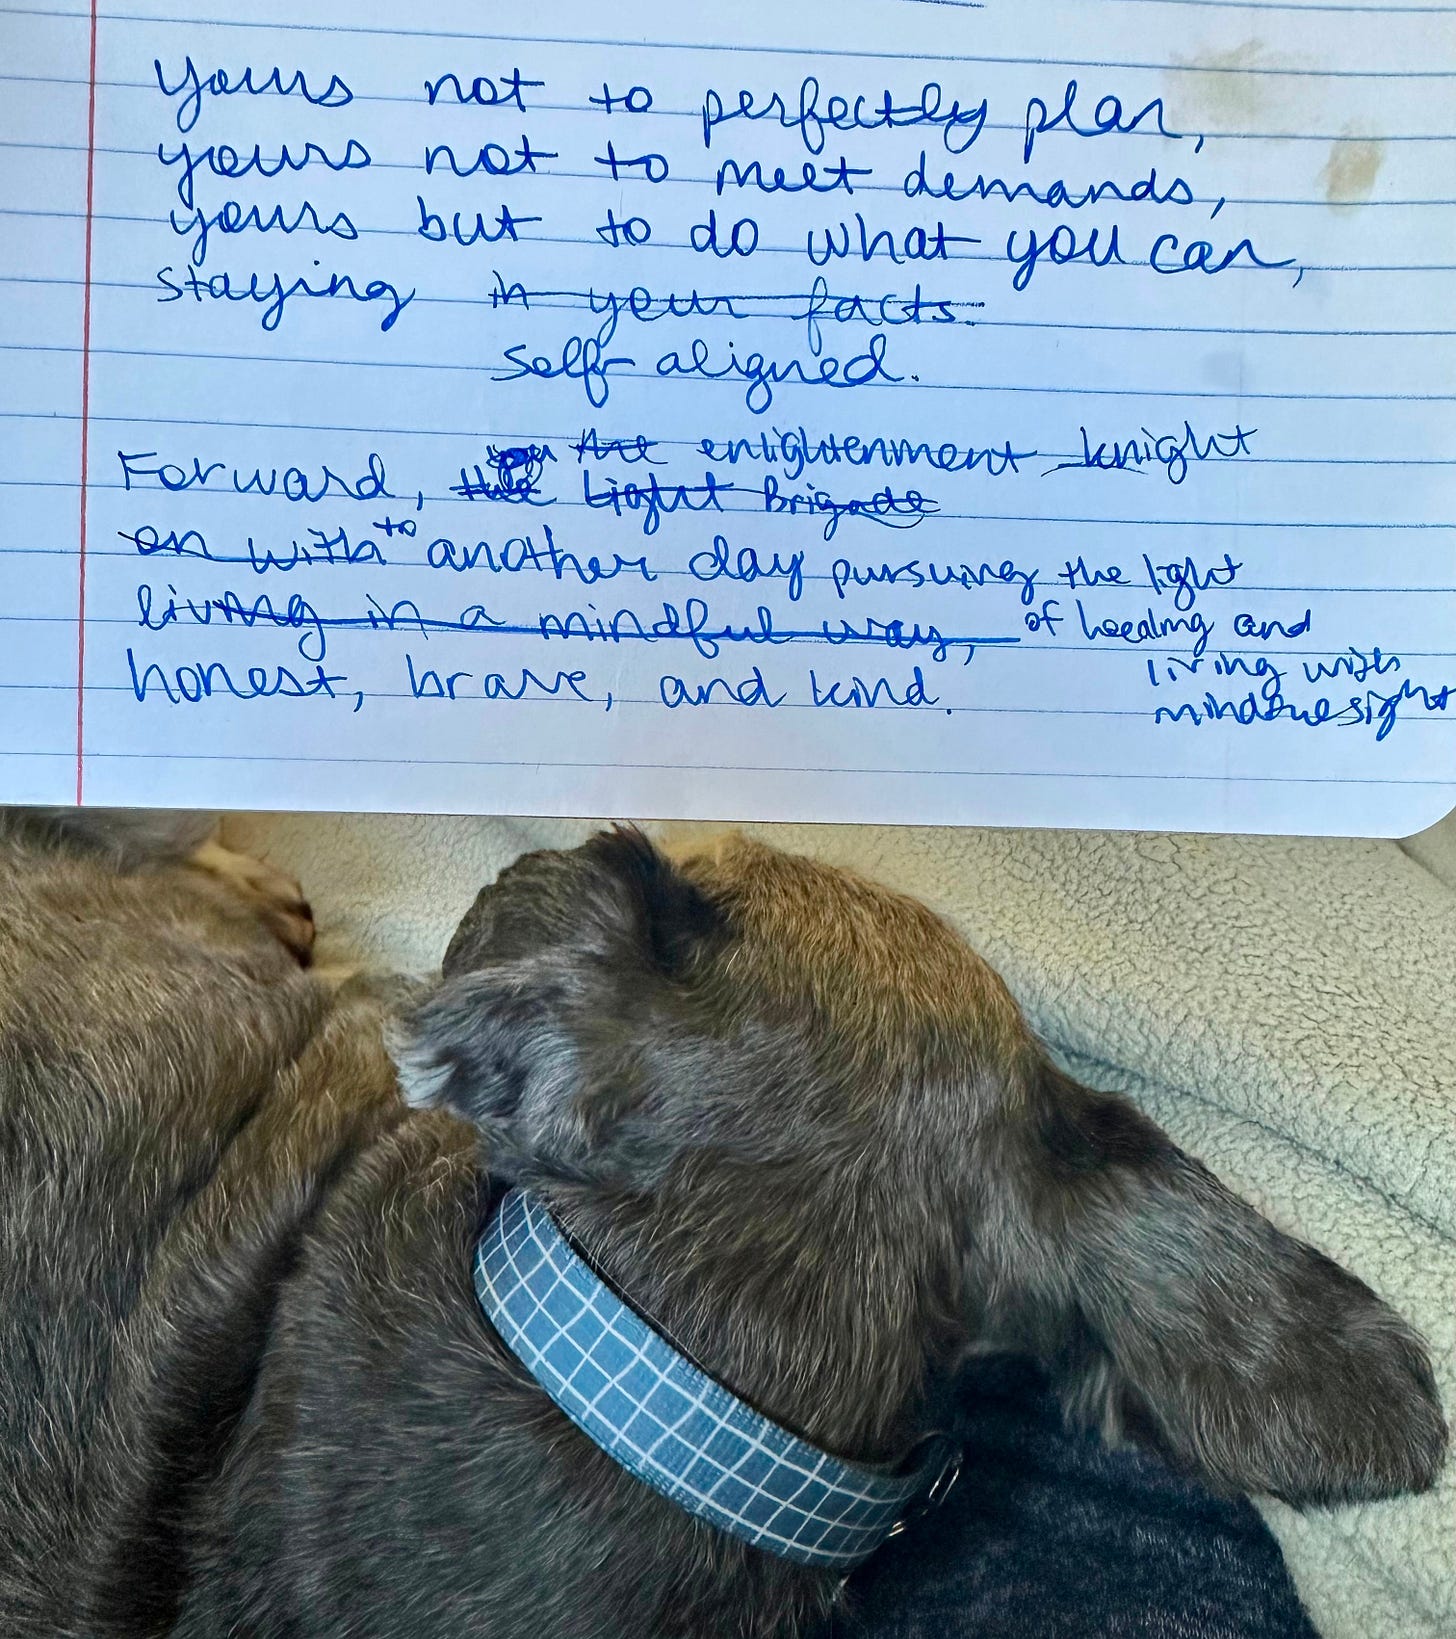 yours not to perfectly plan,
yours not to meet demands,
yours but to do what you can,
staying in your facts.
self-aligned.
the enlightenment knight
Forward, the Light Brigade
on with to another day pursuing the light
living in a mindful way, of healing and
living with
honest, brave, and kind.